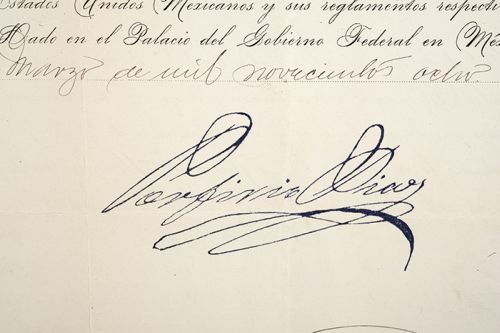 Estados Unidos Mexicanos y sus reglamentos respecti
Dado en el Palacio del Gobierno Federal en Mé
Marzo de mil novecientos ocho.
Porfirio Diaz